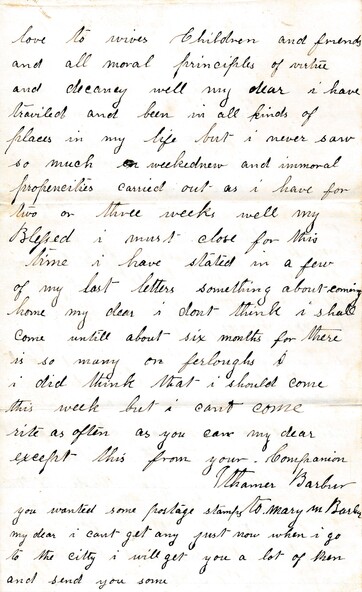 love to wives Children and friends
and all moral principles of virtue
and decancy well my dear i have
traviled and been in all kinds of
places in my life but i never saw
so much weekednew and immoral
propencities carried out as i have for
two or three weeks well my
Blessed i must close for this
time i have stated in a few
of my last letters something about coming
home my dear i dont think i shall
come untill about six months for there
is so many on ferloughs &
i did think that i should come
this week but i cant come
rite as often as you can my dear
except this from your Companion
Uthamer Barber
to mary m Barber
you wanted some postage stamps
my dear i cant get any just now when i go
to the citty i will get you a lot of them
and send you some